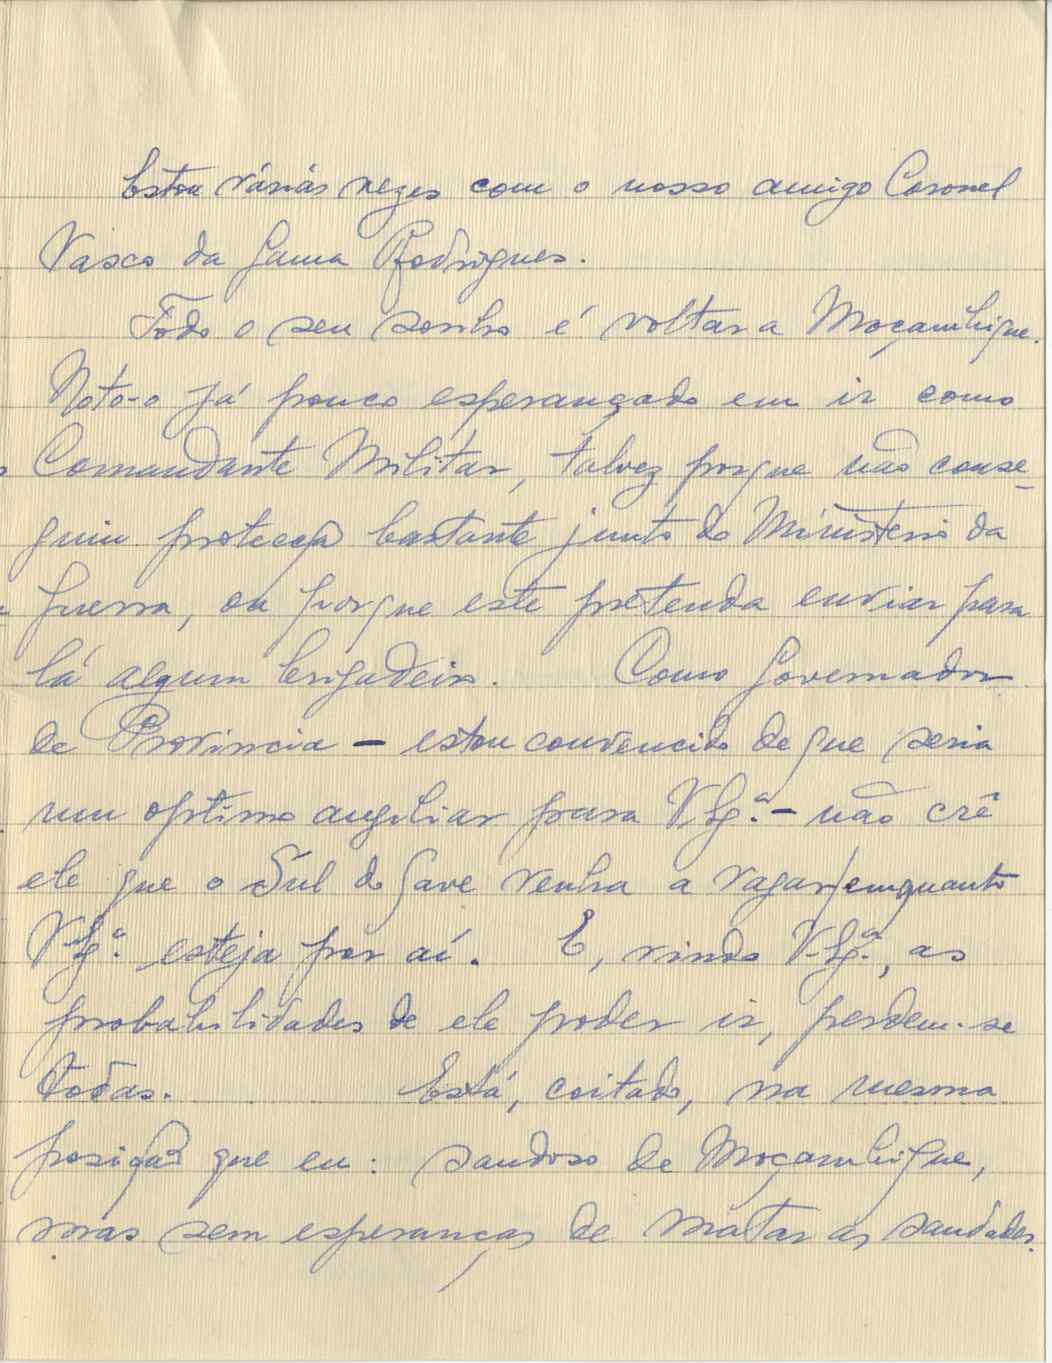 Estou várias vezes com o nosso amigo Coronel
Vasco da Gama Rodrigues.
Todo o seu sonho é voltar a Moçambique.
Noto-o já pouco esperançado em ir como
Comandante Militar, talvez porque não conse-
guiu protecção bastante junto do Ministério da
Guerra, ou porque este pretenda enviar para
lá algum brigadeiro. Como Governador
de Provincia - estou convencido de que seria
um optimo auxiliar para V. Ex.ª - não crê
ele que o Sul do Save venha a vagar enquanto
V. Ex.ª esteja por aí. E, vindo V. Ex.ª, as
probabilidades de ele poder ir, perdem-se
todas. Está, coitado, na mesma
posição que eu: saudoso de Moçambique,
mas sem esperanças de matar as saudades.